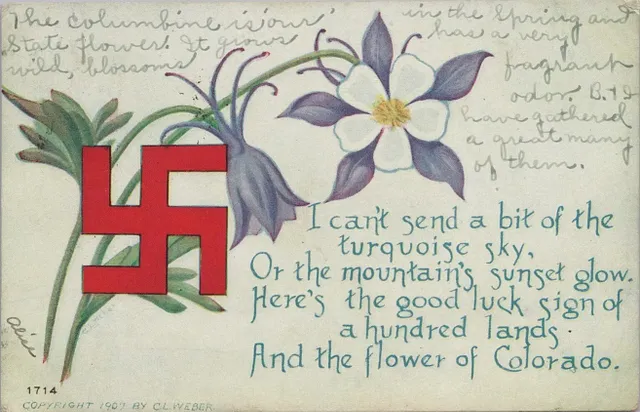 The columbine is our
State flower. It grows
wild, blossoms
in the Spring and
has a very
fragrant
odor. B. + I
have gathered
a great many
of them.
I can't send a bit of the
turquoise sky,
Or the mountain's sunset glow.
Here's the good luck sign of
a hundred lands
And the flower of Colorado.
Alice
1714
COPYRIGHT 1907 BY C.L. WEBER